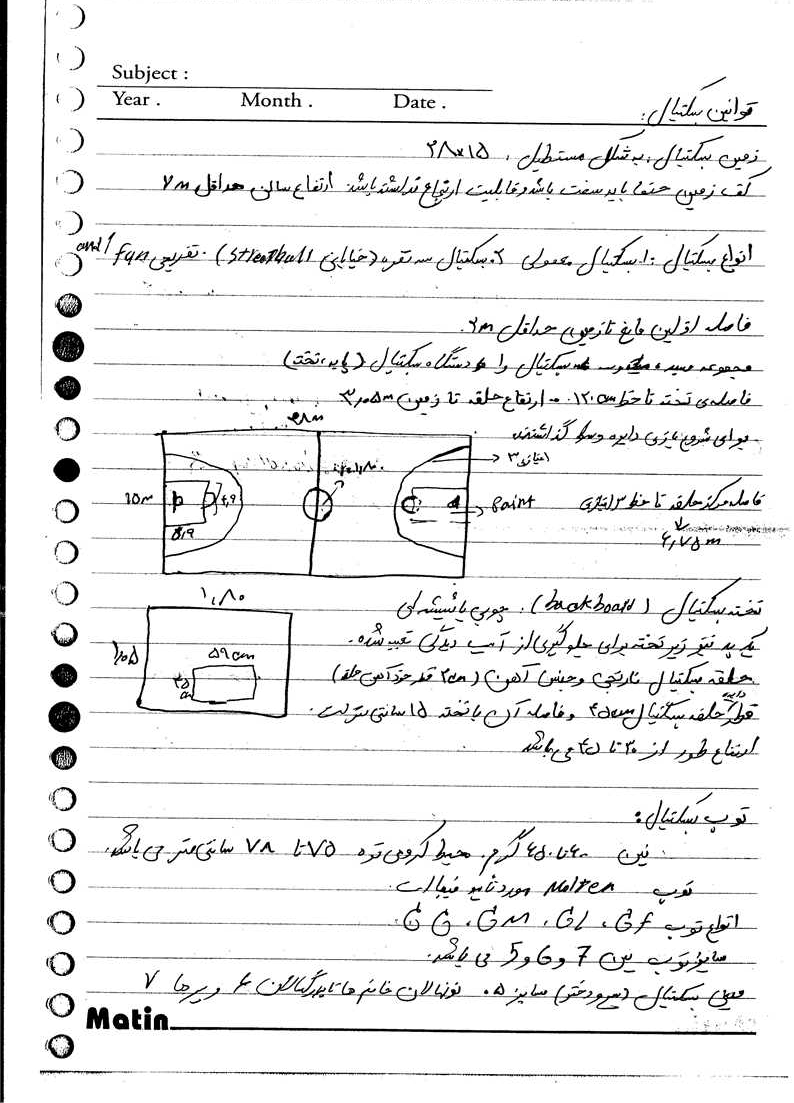 Subject :
Year . Month . Date .
قوانین بسکتبال:
زمین بسکتبال، به شکل مستطیل، ۲۸×۱۵
کف زمین حتما باید سفت باشد و قابلیت ارتجاع نداشته باشد. ارتفاع سالن حداقل ۷ m
انواع بسکتبال: ۱. بسکتبال معمولی ۲. بسکتبال سه نفره (خیابانی streetball) . تفریحی fun and 1
فاصله اولین مانع تا زمین حداقل ۲m.
مجموعه بسکتبال را دستگاه بسکتبال (پایه، تخته)
فاصله‌ی تخته تا خط ۱۲۰cm . ارتفاع حلقه تا زمین ۳٫۰۵m
برای شروع بازی دایره وسط گذاشتند
۲۸m
۱٫۸۰
۳ امتیازی
۱۵m
۴٫۹
۵٫۸
Paint
فاصله مرکز حلقه تا خط ۳ امتیازی
۶٫۷۵ m
تخته بسکتبال (backboard). چوبی یا شیشه‌ای
۱٫۸۰
۱٫۰۵
۵۹ cm
۴۵ cm
یک پد نیز زیر تخته برای جلوگیری از آسیب دیدگی تعبیه شده.
حلقه بسکتبال نارنجی و جنس آهن (۲cm قطر خود آهن حلقه)
قطر دایره حلقه بسکتبال ۴۵cm و فاصله آن با تخته ۱۵ سانتی متر است.
ارتفاع طور از ۴۰ تا ۴۵ می باشد
توپ بسکتبال:
بین ۶۰۰ تا ۶۵۰ گرم. محیط کروی توپ ۷۵ تا ۷۸ سانتی متر می باشد.
توپ Molten مورد تأیید فیبا است.
انواع توپ GG، GM، GL، GF.
سایز توپ بین 7 و 6 و 5 می باشد.
مینی بسکتبال (پسر و دختر) سایز ۵. نونهالان خانم ها تا بزرگسالان ۶ و پسرها ۷
Matin